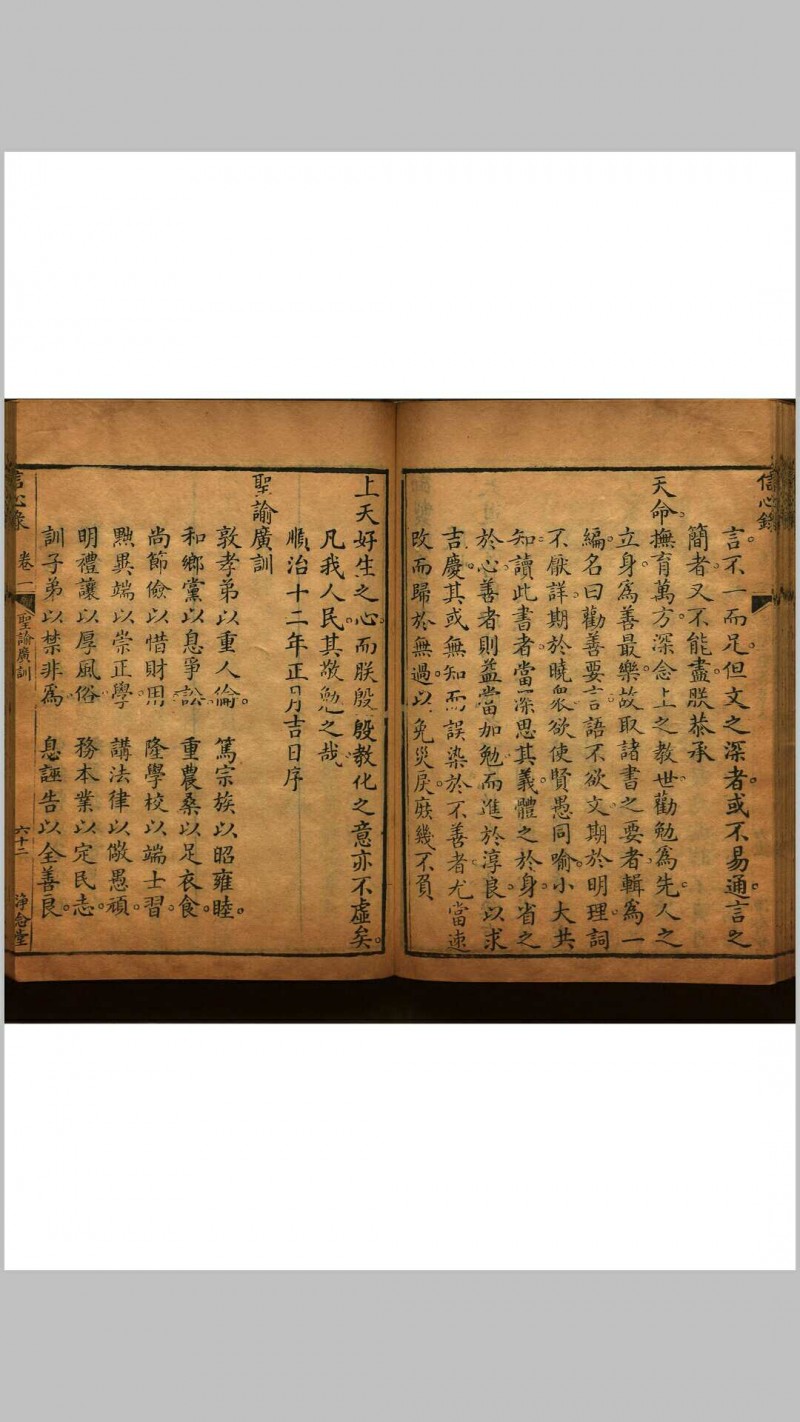 信心錄
言不一而足。但文之深者。或不易通。言之
簡者。又不能盡。朕恭承
天命。撫育萬方。深念上之教世。勸勉爲先。人之
立身。爲善最樂。故取諸書之要者。輯爲一
編。名曰勸善要言。語不欲文。期於明理。詞
不厭詳。期於曉衆。欲使賢愚同喻。小大共
知。讀此書者。當深思其義。體之於身。省之
於心。善者則益當加勉。而進於淳良。以求
吉慶。其或無知。而誤染於不善者。尤當速
改而歸於無過。以免災戾。庶幾不負
上天好生之心。而朕殷殷教化之意亦不虛矣。
凡我人民。其敬勉之哉
順治十二年正月吉日序
聖諭廣訓
敦孝弟以重人倫。 篤宗族以昭雍睦。
和鄉黨以息爭訟。 重農桑以足衣食。
尚節儉以惜財用。 隆學校以端士習。
黜異端以崇正學。 講法律以儆愚頑。
明禮讓以厚風俗。 務本業以定民志。
訓子弟以禁非爲。 息誣告以全善良。
信心錄 卷一 聖諭廣訓 六十二 淨念堂